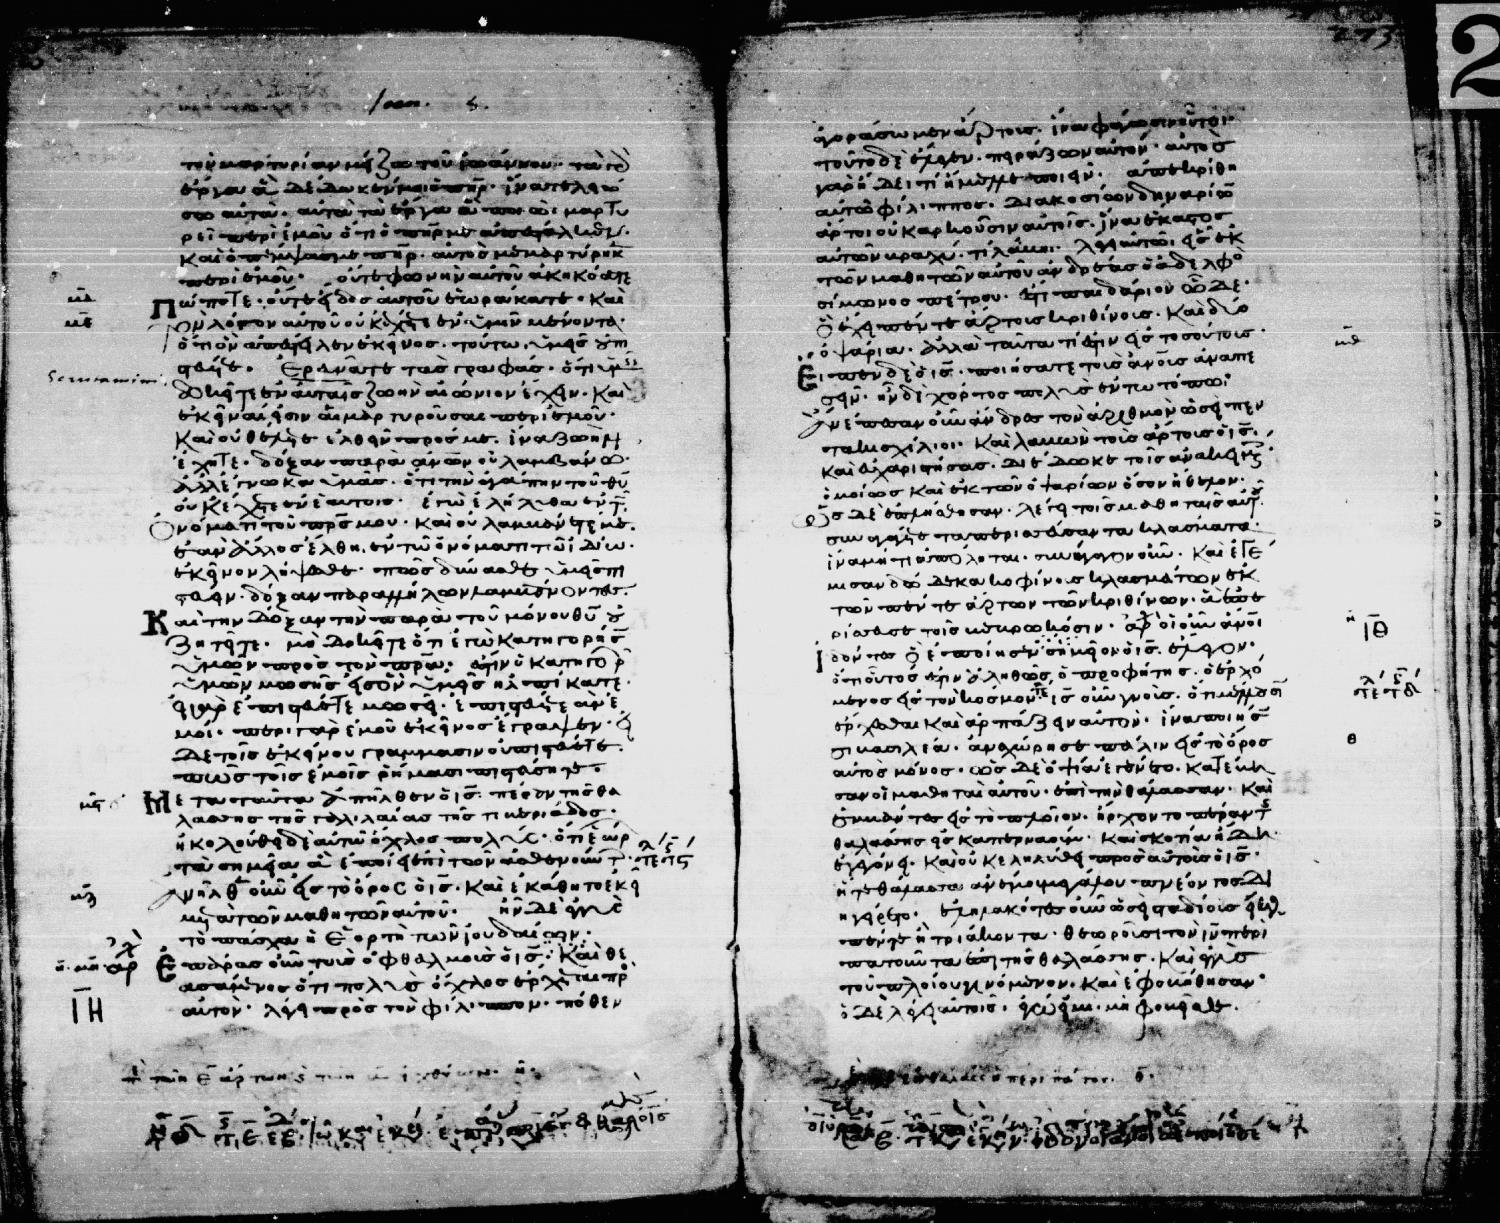 Ioan. 5.
τὴν μαρτυρίαν μείζω τοῦ ἰωάννου· τὰ γὰρ
ἔργα ἃ δέδωκέν μοι ὁ πηρ· ἵνα τελειώ
σω αὐτὰ· αὐτὰ τὰ ἔργα ἃ ποιῶ· μαρτυ
ρεῖ περὶ ἐμοῦ ὅτι ὁ πηρ με ἀπέσταλκεν·
καὶ ὁ πέμψας με πηρ· αὐτὸς μεμαρτύρηκ
περὶ ἐμοῦ· οὔτε φωνὴν αὐτοῦ ἀκηκόατε
πώποτε· οὔτε εἶδος αὐτοῦ ἑωράκατε· καὶ
τὸν λόγον αὐτοῦ οὐκ ἔχετε ἐν ὑμῖν μένοντα·
ὅτι ὃν ἀπέστειλεν ἐκεῖνος· τούτω ὑμεῖς οὐ πι
στεύετε· Ἐρευνᾶτε τὰς γραφάς· ὅτι ὑμεῖς
Scrutamini
δοκεῖτε ἐν αὐταῖς ζωὴν αἰώνιον ἔχειν· καὶ
ἐκεῖναί εἰσιν αἱ μαρτυροῦσαι περὶ ἐμοῦ·
καὶ οὐ θέλετε ἐλθεῖν πρός με· ἵνα ζωὴν
ἔχητε· δόξαν παρὰ ἀνων οὐ λαμβάνω·
ἀλλ' ἔγνωκα ὑμᾶς· ὅτι τὴν ἀγάπην τοῦ θυ
οὐκ ἔχετε ἐν ἑαυτοῖς· ἐγὼ ἐλήλυθα ἐν τ
ὀνόματι τοῦ πρς μου· καὶ οὐ λαμβάνετέ με·
ἐὰν ἄλλος ἔλθη ἐν τῶ ὀνόματι τῶ ἰδίω·
ἐκεῖνον λήψεσθε· πῶς δύνασθε ὑμεῖς πι
στεῦειν· δόξαν παρὰ ἀλλήλων λαμβάνοντες·
Καὶ τὴν δόξαν τὴν παρὰ τοῦ μόνου θυ οὐ
ζητεῖτε· μὴ δοκεῖτε ὅτι ἐγὼ κατηγορήσ
ὑμῶν πρὸς τὸν πρα· ἔστιν ὁ κατηγορ
ὑμῶν μωσῆς εἰς ὃν ὑμεῖς ἠλπίκατε·
εἰ γὰρ ἐπιστεύετε μωσῆ· ἐπιστεύετε ἂν ἐ
μοί· περὶ γὰρ ἐμοῦ ἐκεῖνος ἔγραψεν· εἰ
δὲ τοῖς ἐκείνου γράμμασιν οὐ πιστεύετε·
πῶς τοῖς ἐμοῖς ῥήμασι πιστεύσητε·
Μετὰ ταῦτα ἀπῆλθεν ὁ ις πέραν τῆς θα
λάσσης τῆς γαλιλαίας τῆς τιβεριάδος·
ἠκολούθει δὲ αὐτῶ ὄχλος πολύς· ὅτι ἑώρ
τὰ σημεῖα ἃ ἐποίει ἐπὶ τῶν ἀσθενούντ·
Ἀνῆλθε οὖν εἰς τὸ ὄρος ὁ ις· καὶ ἐκάθητο ἐκεῖ
μετὰ τῶν μαθητῶν αὐτοῦ· ἦν δὲ ἐγγὺς
τὸ πάσχα ἡ ἑορτὴ τῶν ἰουδαίων·
Ἐπάρας οὖν τοὺς ὀφθαλμοὺς ὁ ις· καὶ θε
ασάμενος ὅτι πολὺς ὄχλος ἔρχεται πρ
αὐτὸν· λέγει πρὸς τὸν φίλιππον· πόθεν
ΙΗ
ἀγοράσωμεν ἄρτους· ἵνα φάγωσιν οὗτοι·
τοῦτο δὲ ἔλεγεν· πειράζων αὐτὸν· αὐτὸς
γὰρ ἤδει τί ἤμελλε ποιεῖν· ἀπεκρίθη
αὐτῶ φίλιππος· διακοσίων δηναρίων
ἄρτοι οὐκ ἀρκοῦσιν αὐτοῖς· ἵνα ἕκαστος
αὐτῶν βραχύ τι λάβη· λέγει αὐτῶ εἷς ἐκ
τῶν μαθητῶν αὐτοῦ ἀνδρέας ὁ ἀδελφὸ
σίμωνος πέτρου· ἔστι παιδάριον ὧδε·
ὃ ἔχει πέντε ἄρτους κριθίνους· καὶ δύο
ὀψάρια· ἀλλὰ ταῦτα τί ἐστιν εἰς τοσούτους·
Εἶπεν δὲ ὁ ις· ποιήσατε τοὺς ανους ἀναπε
σεῖν· ἦν δὲ χόρτος πολὺς ἐν τῶ τόπω·
ἀνέπεσαν οὖν ἄνδρες τὸν ἀριθμὸν ὡσεὶ πεν
τακισχίλιοι· καὶ λαβὼν τοὺς ἄρτους ὁ ις·
καὶ εὐχαριστήσας· διέδωκε τοῖς ἀνακειμ
ὁμοίως καὶ ἐκ τῶν ὀψαρίων ὅσον ἤθελον·
ὡς δὲ ἐνεπλήσθησαν· λέγει τοῖς μαθηταῖς αὐτ
συναγάγετε τὰ περισσεύσαντα κλάσματα·
ἵνα μή τι ἀπόληται· συνήγαγον οὖν· καὶ ἐγέ
μισαν δώδεκα κοφίνους κλασμάτων ἐκ
τῶν πέντε ἄρτων τῶν κριθίνων· ἃ ἐπε
ρίσσευσε τοῖς βεβρωκόσιν· οἱ οὖν ανοι
ἰδόντες ὃ ἐποίησεν σημεῖον ὁ ις· ἔλεγον·
ὅτι οὗτός ἐστιν ἀληθῶς ὁ προφήτης· ὁ ἐρχό
μενος εἰς τὸν κόσμον· ις οὖν γνοὺς· ὅτι μέλλουσι
ἔρχεσθαι καὶ ἁρπάζειν αὐτὸν· ἵνα ποιήσ
σι βασιλέα· ἀνεχώρησε πάλιν εἰς τὸ ὄρος
αὐτὸς μόνος· ὡς δὲ ὀψία ἐγένετο· κατέβη
σαν οἱ μαθηταὶ αὐτοῦ· ἐπὶ τὴν θάλασσαν· καὶ
ἐμβάντες εἰς τὸ πλοῖον· ἤρχοντο πέραν τ
θαλάσσης εἰς καπερναούμ· καὶ σκοτία ἤδη
ἐγεγόνει· καὶ οὐκ ἐληλύθει πρὸς αὐτοὺς ὁ ις·
ἥ τε θάλασσα ἀνέμου μεγάλου πνέοντος δι
ηγείρετο· ἐληλακότες οὖν ὡσεὶ σταδίους εἴκ
πέντε ἢ τριάκοντα· θεωροῦσι τὸν ιν περι
πατοῦντα ἐπὶ τῆς θαλάσσης· καὶ ἐγγὺς
τοῦ πλοίου γινόμενον· καὶ ἐφοβήθησαν·
ὁ δὲ λέγει αὐτοῖς· ἐγώ εἰμι· μὴ φοβεῖσθε·
ΙΘ
273
2